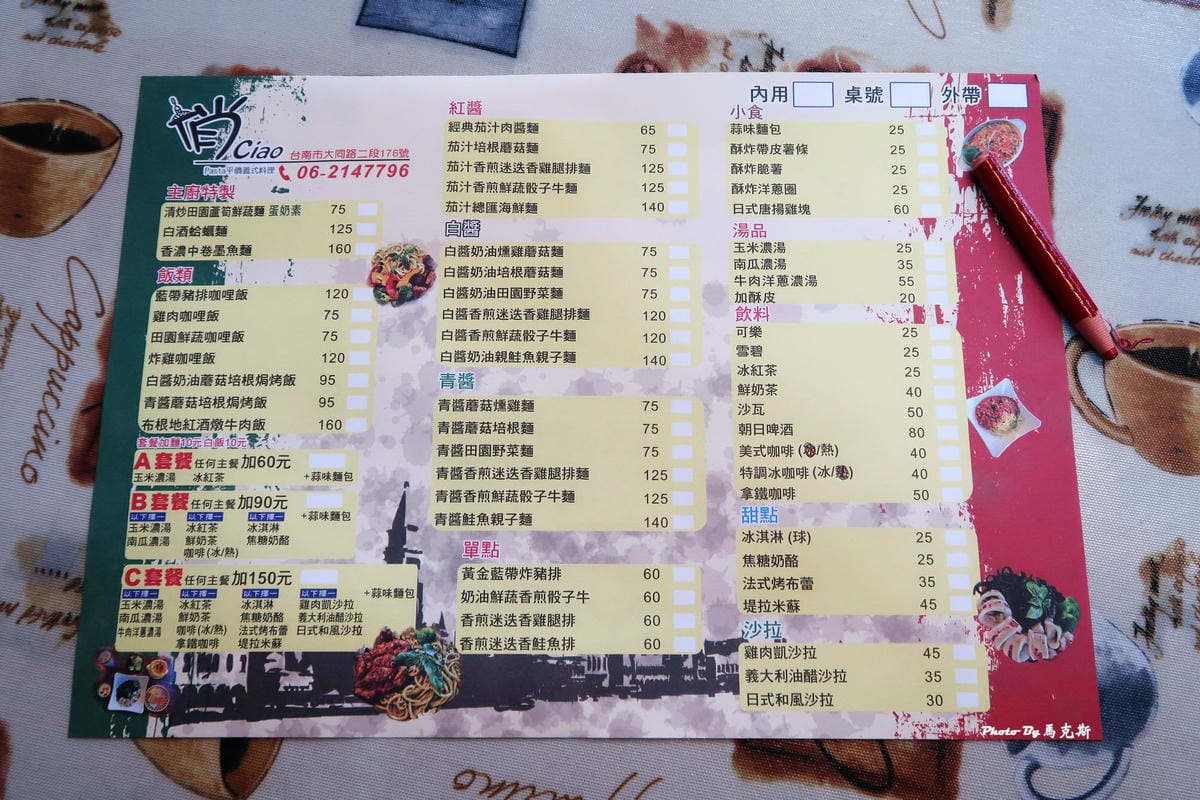 俏 Ciao
台南市大同路二段176號
Pasta平價義式料理
06-2147796
主廚特製
清炒田園蘆筍鮮蔬麵 蛋奶素 75
白酒蛤蠣麵 125
香濃中卷墨魚麵 160
飯類
藍帶豬排咖哩飯 120
雞肉咖哩飯 75
田園鮮蔬咖哩飯 75
炸雞咖哩飯 120
白醬奶油蘑菇培根焗烤飯 95
青醬蘑菇培根焗烤飯 95
布根地紅酒燉牛肉飯 160
套餐加麵10元白飯10元
A套餐 任何主餐 加60元
玉米濃湯 冰紅茶 +蒜味麵包
B套餐 任何主餐 加90元
以下擇一 以下擇一 以下擇一 +蒜味麵包
玉米濃湯 冰紅茶 冰淇淋
南瓜濃湯 鮮奶茶 焦糖奶酪
咖啡(冰/熱)
C套餐 任何主餐 加150元
以下擇一 以下擇一 以下擇一 以下擇一 +蒜味麵包
玉米濃湯 冰紅茶 冰淇淋 雞肉凱沙拉
南瓜濃湯 鮮奶茶 焦糖奶酪 義大利油醋沙拉
牛肉洋蔥濃湯 咖啡(冰/熱) 法式烤布蕾 日式和風沙拉
拿鐵咖啡 堤拉米蘇
紅醬
經典茄汁肉醬麵 65
茄汁培根蘑菇麵 75
茄汁香煎迷迭香雞腿排麵 125
茄汁香煎鮮蔬骰子牛麵 125
茄汁總匯海鮮麵 140
白醬
白醬奶油燻雞蘑菇麵 75
白醬奶油培根蘑菇麵 75
白醬奶油田園野菜麵 75
白醬香煎迷迭香雞腿排麵 120
白醬香煎鮮蔬骰子牛麵 120
白醬奶油親鮭魚親子麵 140
青醬
青醬蘑菇燻雞麵 75
青醬蘑菇培根麵 75
青醬田園野菜麵 75
青醬香煎迷迭香雞腿排麵 125
青醬香煎鮮蔬骰子牛麵 125
青醬鮭魚親子麵 140
單點
黃金藍帶炸豬排 60
奶油鮮蔬香煎骰子牛 60
香煎迷迭香雞腿排 60
香煎迷迭香鮭魚排 60
內用 桌號 外帶
小食
蒜味麵包 25
酥炸帶皮薯條 25
酥炸脆薯 25
酥炸洋蔥圈 25
日式唐揚雞塊 60
湯品
玉米濃湯 25
南瓜濃湯 35
牛肉洋蔥濃湯 55
加酥皮 20
飲料
可樂 25
雪碧 25
冰紅茶 25
鮮奶茶 40
沙瓦 50
朝日啤酒 80
美式咖啡 (冰/熱) 40
特調冰咖啡 (冰/熱) 40
拿鐵咖啡 50
甜點
冰淇淋 (球) 25
焦糖奶酪 25
法式烤布蕾 35
堤拉米蘇 45
沙拉
雞肉凱沙拉 45
義大利油醋沙拉 35
日式和風沙拉 30
Photo By 馬克斯
Cappuccino